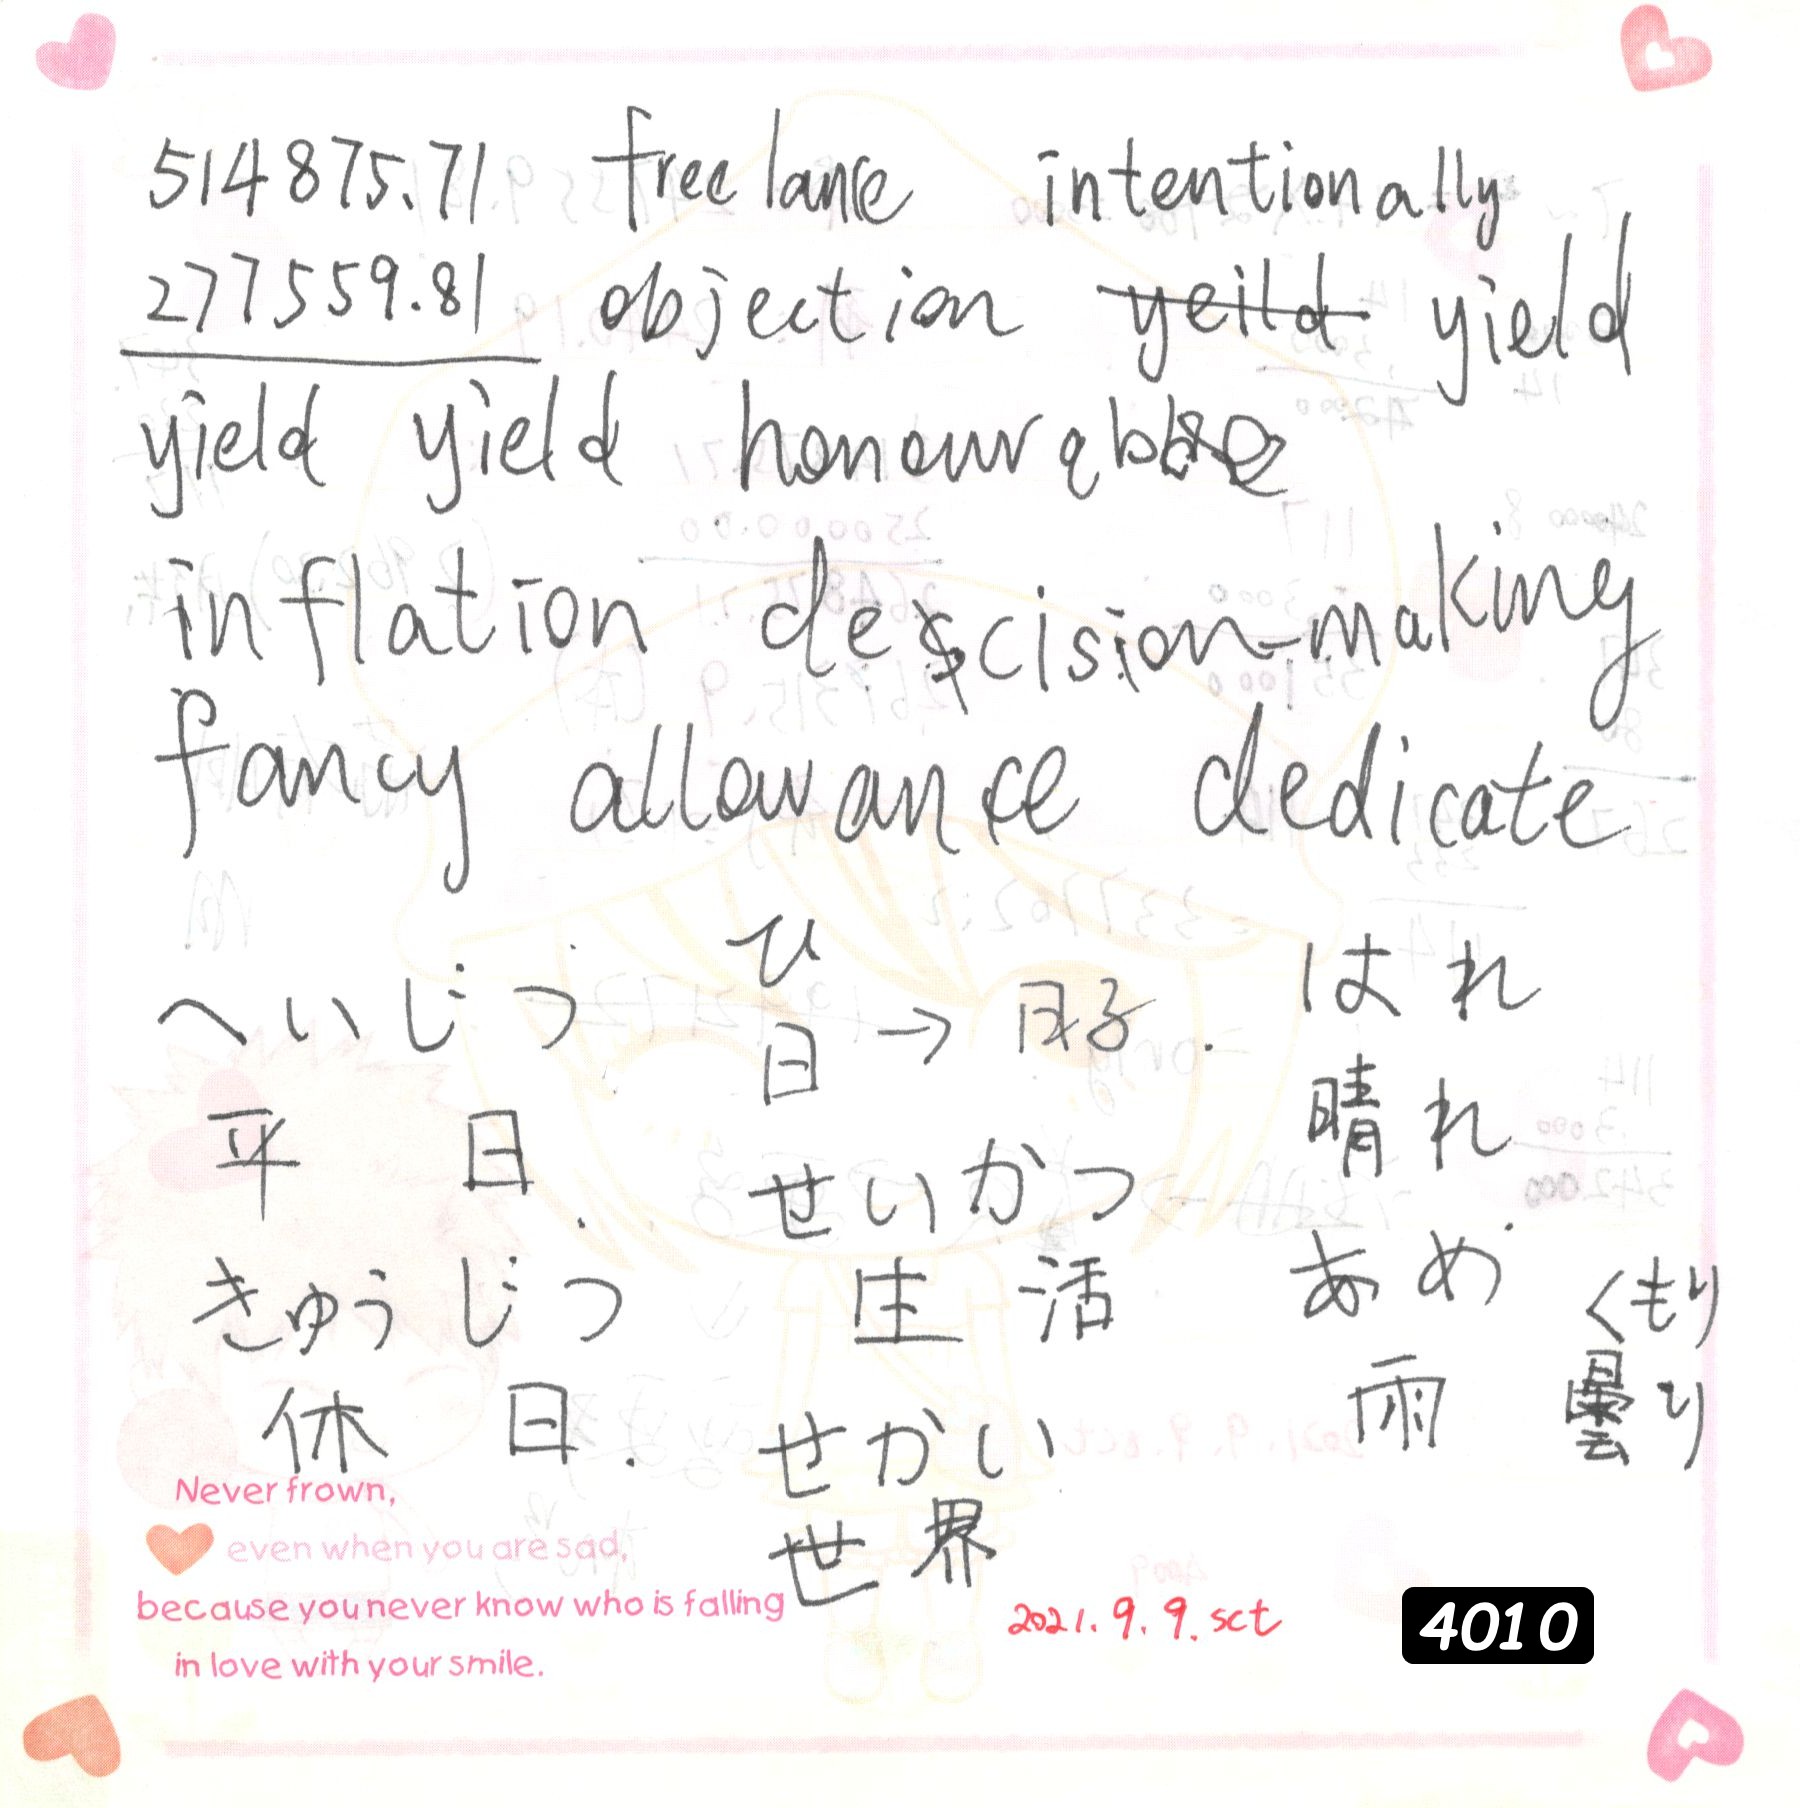 514875.71 freelance intentionally
277559.81 objection yeild yield
yield yield honourable
inflation decision-making
fancy allowance dedicate
へいじつ
平日.
きゅうじつ
休日.
ひ
日 →
せいかつ
生活
せかい
世界
はれ
晴れ
あめ
雨
くもり
曇り
Never frown,
even when you are sad,
because you never know who is falling
in love with your smile.
2021.9.9.sct
4010